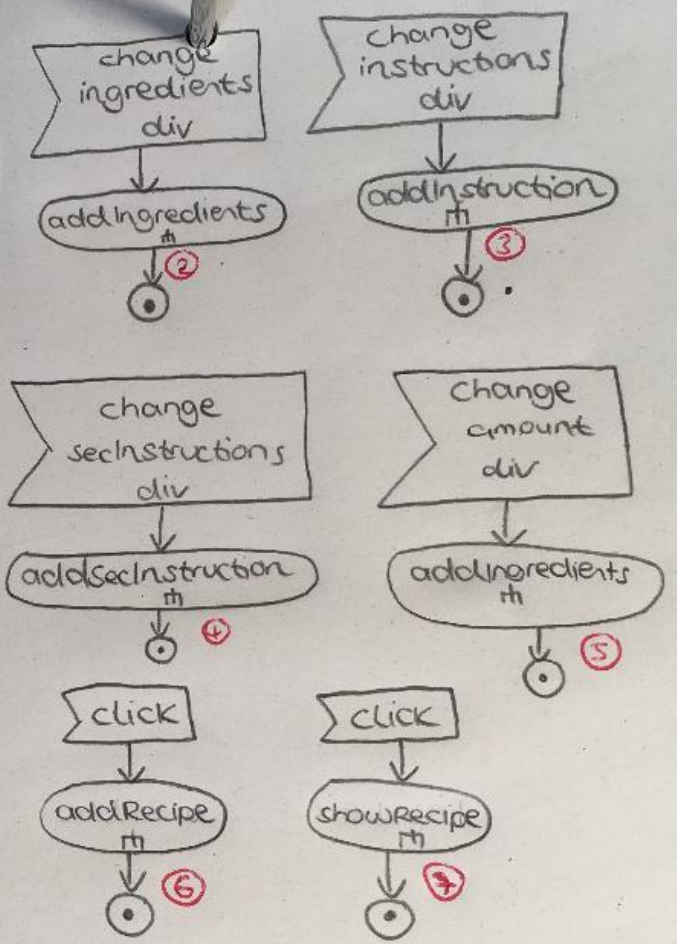 change
ingredients
div
addIngredients
2
change
instructions
div
addInstruction
3
change
secInstructions
div
addSecInstruction
4
change
amount
div
addIngredients
5
click
addRecipe
6
click
showRecipe
7